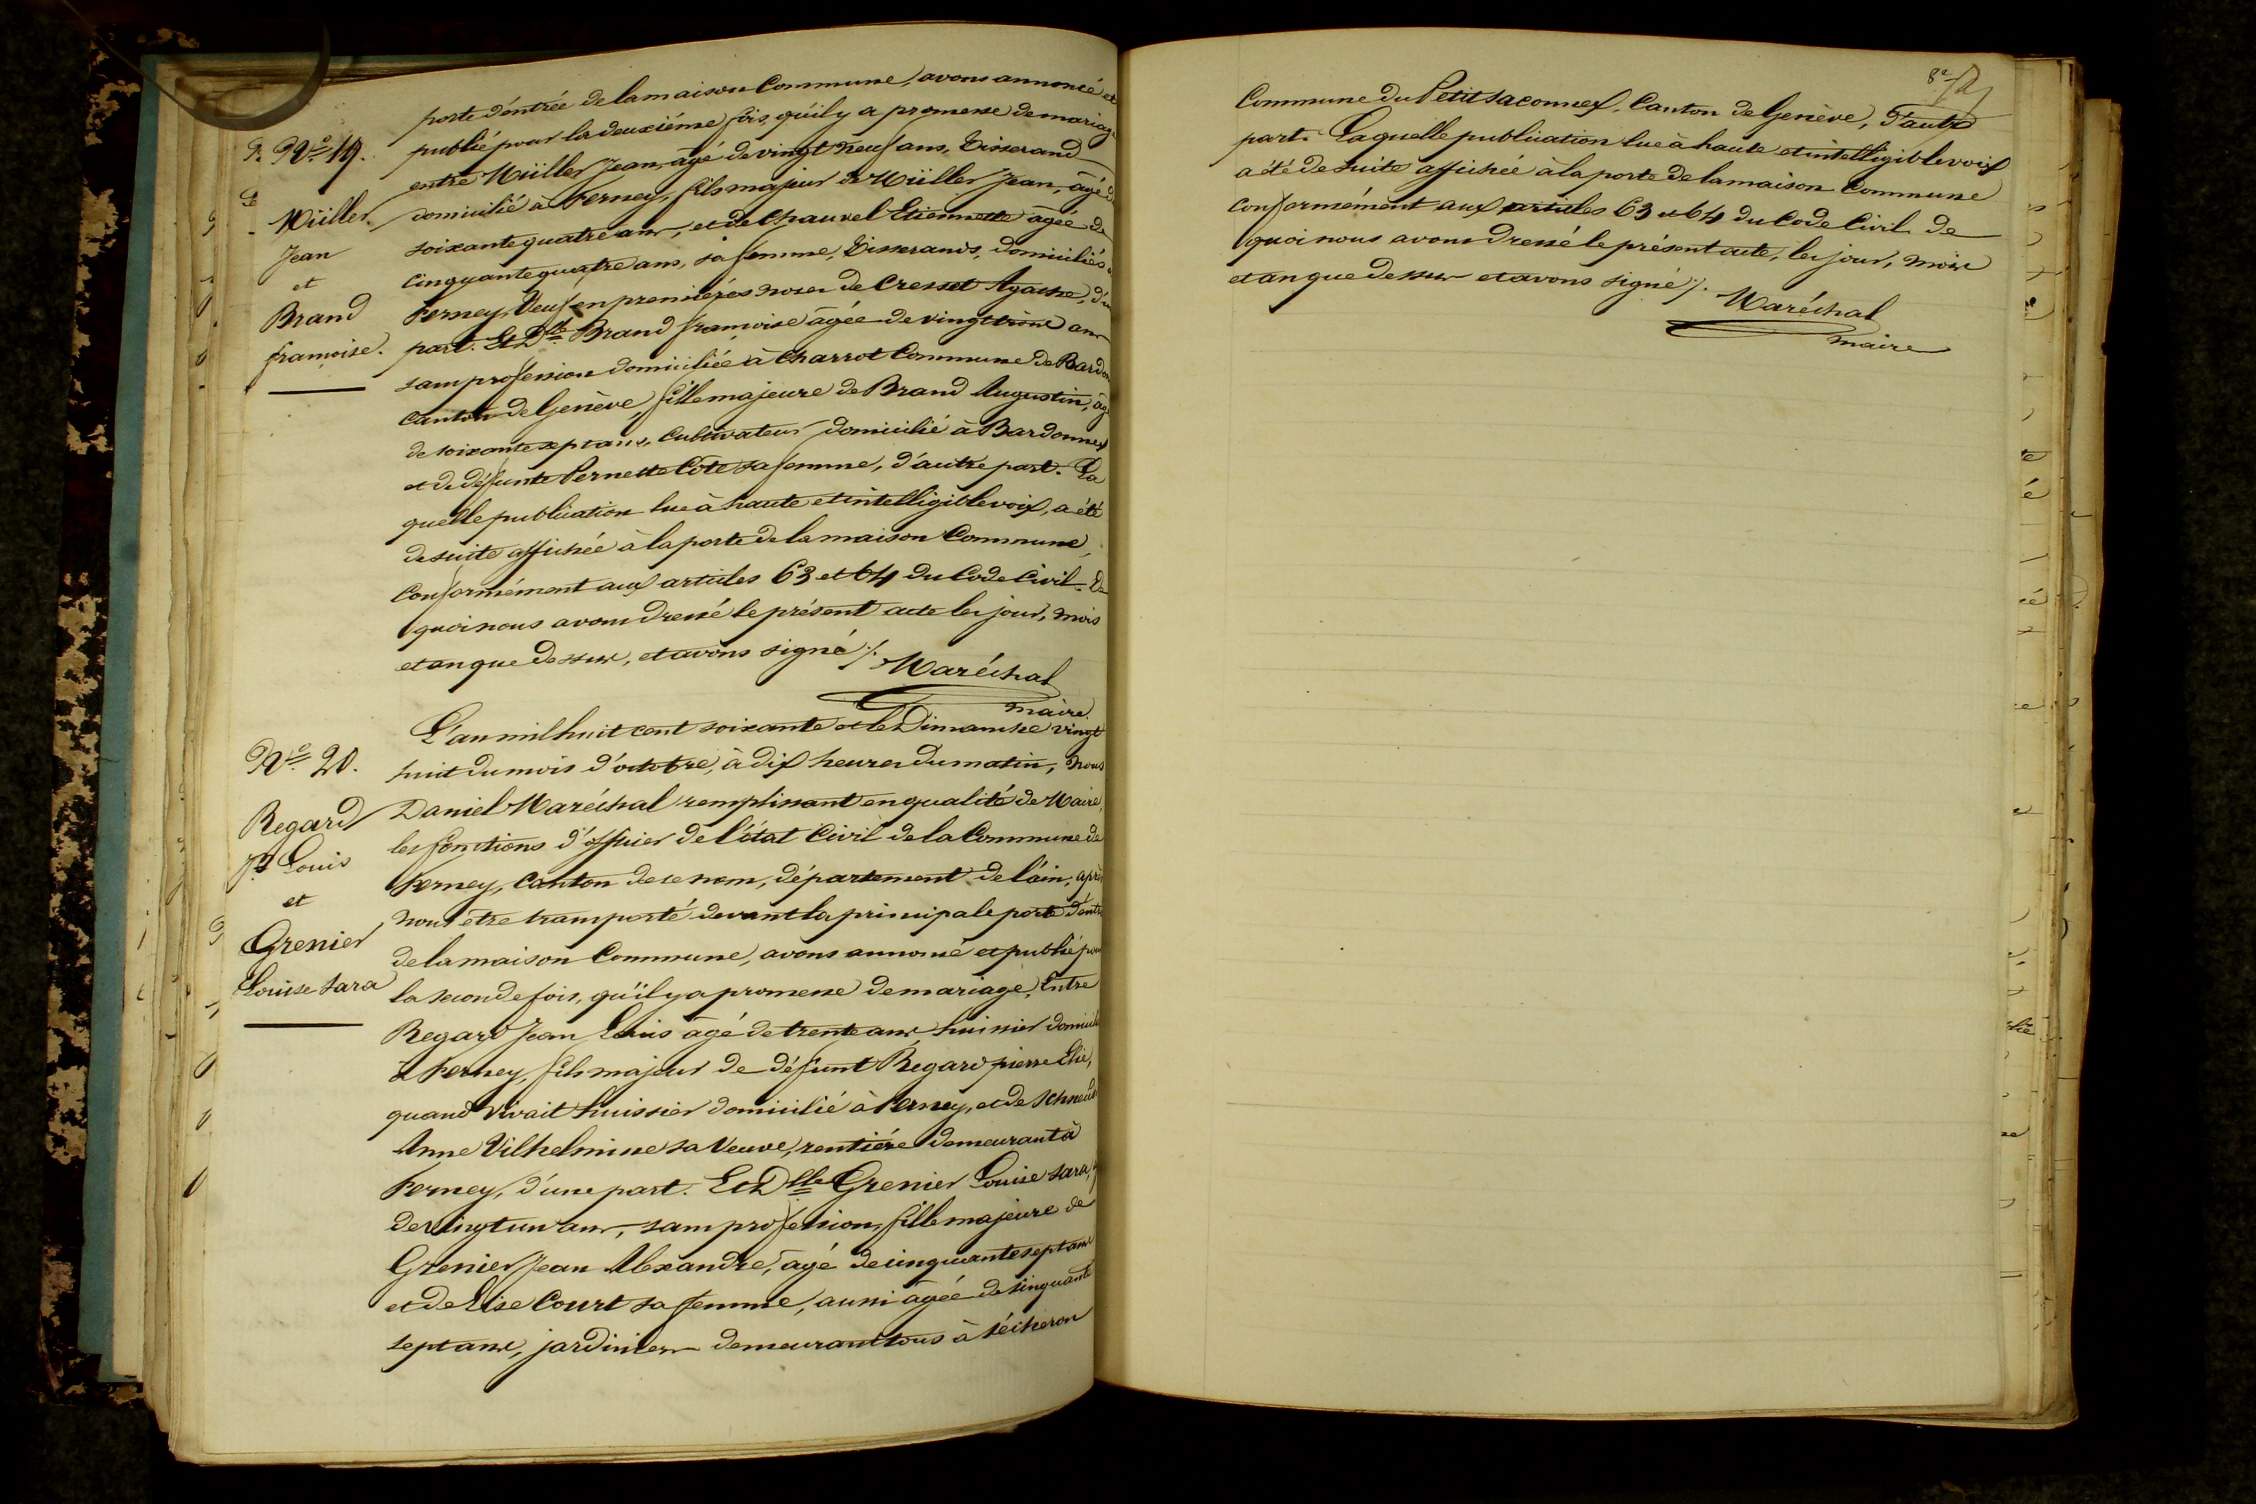 porte d'entrée de la maison Commune, avons annoncé et
publié pour la deuxième fois, qu'il y a promesse de mariage
Nº 19.
entre Müller Jean, âgé de vingt neuf ans, Tisserand
domicilié à Ferney, fils majeur de Müller Jean, âgé de
Müller
Jean
et
Brand
françoise.
soixante quatre ans, et de Chauvel Etiennette âgée de
cinquante quatre ans, sa femme, Tisserands, domiciliés à
Ferney, Veuf en premières noces de Cresset Agathe, d'une
part. Et Dlle Brand françoise âgée de vingt trois ans
sans profession domiciliée à Charrot Commune de Bardon
canton de Genève, fille majeure de Brand Augustin, âgé
de soixante sept ans, Cultivateur domicilié à Bardonnex
et de défunte Pernette Côte sa femme, d'autre part. La
quelle publication lue à haute et intelligible voix, a été
de suite affichée à la porte de la maison Commune,
Conformément aux articles 63 et 64 du Code Civil. De
quoi nous avons dressé le présent acte les jour, mois
et an que dessus, et avons signé ./.
Maréchal
maire
L'an mil huit cent soixante et le Dimanche vingt
Nº 20.
huit du mois d'octobre, à dix heures du matin, Nous
Regard
Jn Louis
et
Grenier
Louise Sara
Daniel Maréchal remplissant en qualité de Maire,
les fonctions d'officier de l'état Civil de la Commune de
Ferney, Canton de ce nom, département de l'ain, après
nous être transporté devant la principale porte d'entr
de la maison Commune, avons annoncé et publié pour
la seconde fois, qu'il y a promesse de mariage, Entre
Regard Jean Louis âgé de trente ans huissier domicilié
à Ferney, fils majeur de défunt Regard pierre Elie,
quand vivait huissier domicilié à Ferney, et de Schneid
Anne Vilhelmine sa Veuve, rentière demeurant à
Ferney, d'une part. Et Dlle Grenier Louise Sara,
de vingt un ans, sans profession, fille majeure de
Grenier Jean Alexandre, âgé de cinquante sept ans
et de Elise Court sa femme, aussi âgée de cinquante
sept ans, jardiniers demeurant tous à Sécheron
Commune du Petit Saconnex, Canton de Genève, d'autre
part. Laquelle publication lue à haute et intelligible voix
a été de suite affichée à la porte de la maison Commune
conformément aux articles 63 et 64 du Code Civil. De
quoi nous avons dressé le présent acte, les jour, mois
et an que dessus et avons signé ./.
Maréchal
maire